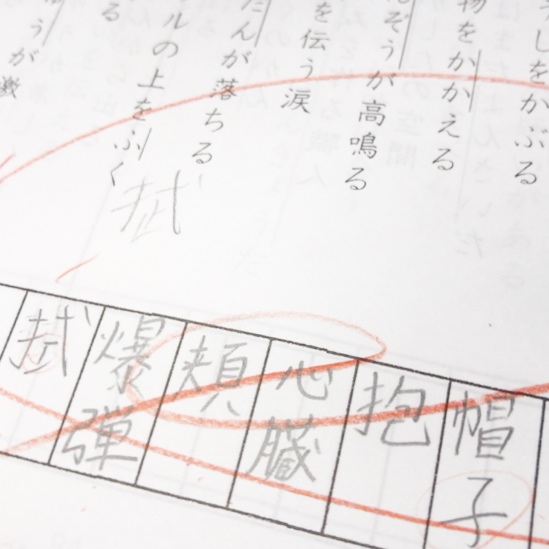 うしをかぶる
物をかかえる
ぞうが高鳴る
を伝う涙
だんが落ちる
ルの上をふく
る
うが
激
拭
帽子
抱
心臓
頬
爆弾
拭